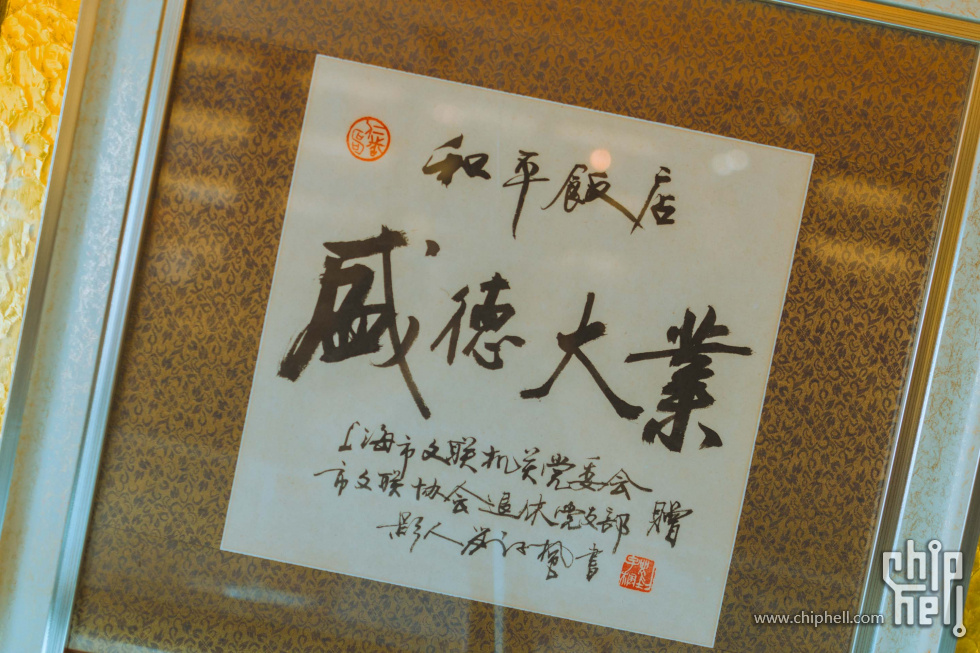 和平飯店
盛德大業
上海市文联机关党委会
市文联协会退休党支部 贈
影人 書
www.chiphell.com
chip
hell